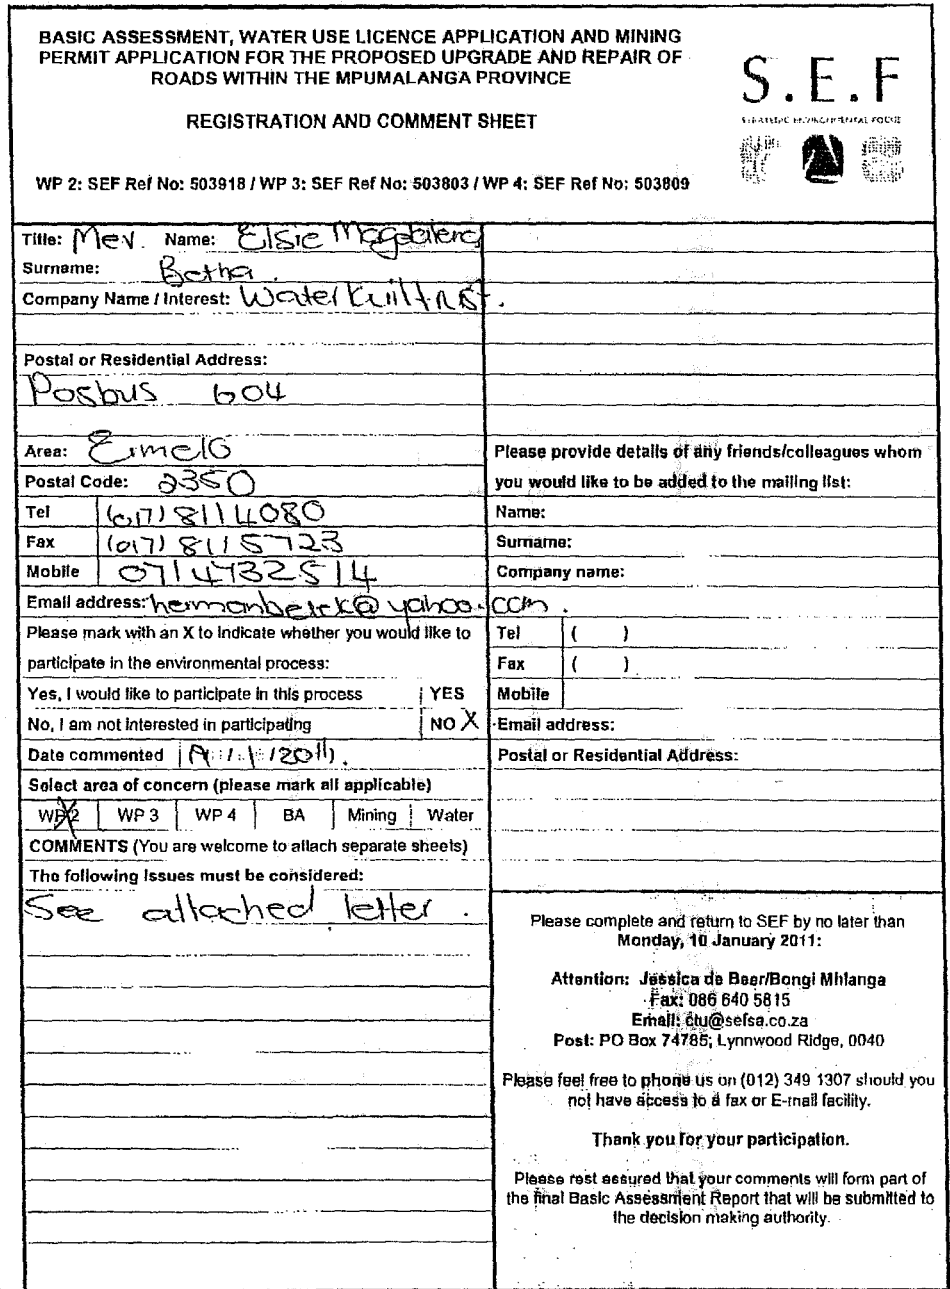 BASIC ASSESSMENT, WATER USE LICENCE APPLICATION AND MINING
PERMIT APPLICATION FOR THE PROPOSED UPGRADE AND REPAIR OF
ROADS WITHIN THE MPUMALANGA PROVINCE
REGISTRATION AND COMMENT SHEET
WP 2: SEF Ref No: 503918 / WP 3: SEF Ref No: 503803 / WP 4: SEF Ref No: 503809
S.E.F
STRATEGIC ENVIRONMENTAL FOCUS
Title: Mev. Name: Elsie Magdalena
Surname: Botha.
Company Name / Interest:
Postal or Residential Address:
Posbus 604
Area: Ermelo
Postal Code: 2350
Tel (017) 8114080
Fax (017) 8115723
Mobile 0714732514
Email address:
Please mark with an X to indicate whether you would like to
participate in the environmental process:
Yes, I would like to participate in this process YES
No, I am not interested in participating NO X
Date commented
Select area of concern (please mark all applicable)
WP 2 X WP 3 WP 4 BA Mining Water
COMMENTS (You are welcome to attach separate sheets)
The following issues must be considered:
See attached letter.
Please provide details of any friends/colleagues whom
you would like to be added to the mailing list:
Name:
Surname:
Company name:
Tel ( )
Fax ( )
Mobile
Email address:
Postal or Residential Address:
Please complete and return to SEF by no later than
Monday, 10 January 2011:
Attention: Jessica de Beer/Bongi Mhlanga
Fax: 086 640 5815
Email: ctu@sefsa.co.za
Post: PO Box 74785; Lynnwood Ridge, 0040
Please feel free to phone us on (012) 349 1307 should you
not have access to a fax or E-mail facility.
Thank you for your participation.
Please rest assured that your comments will form part of
the final Basic Assessment Report that will be submitted to
the decision making authority.